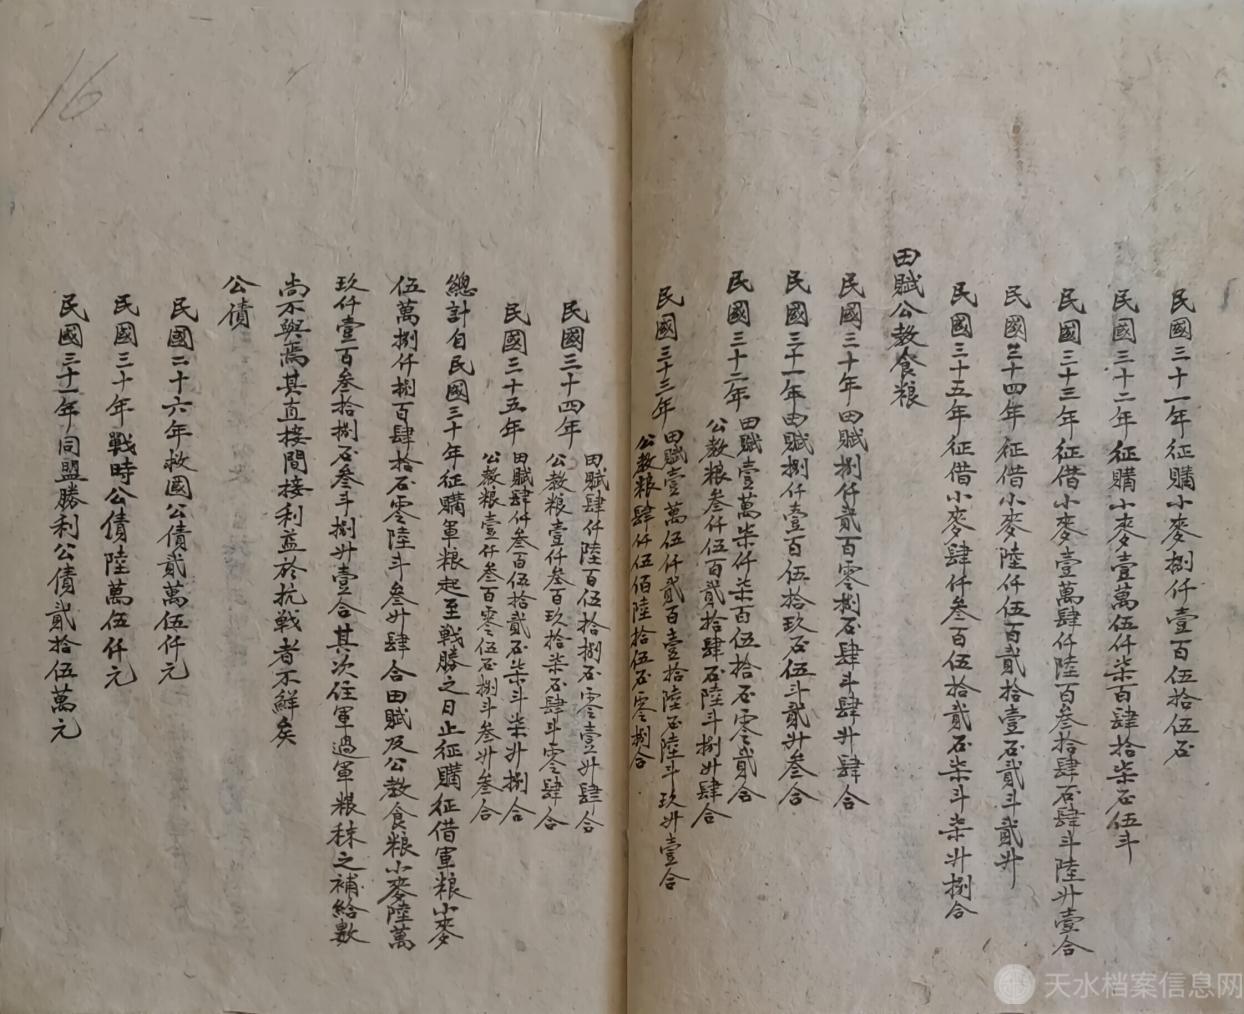 民國三十一年征購小麥捌仟壹百伍拾伍石
民國三十二年征購小麥壹萬伍仟柒百肆拾柒石伍斗
民國三十三年征借小麥壹萬肆仟陸百叁拾肆石肆斗陸升壹合
民國三十四年征借小麥陸仟伍百貳拾壹石貳斗貳升
民國三十五年征借小麥肆仟叁百伍拾貳石柒斗柒升捌合
田賦公教食粮
民國三十年田賦捌仟貳百零捌石肆斗肆升肆合
民國三十一年田賦捌仟壹百伍拾玖石伍斗貳升叁合
民國三十二年
田賦壹萬柒仟柒百伍拾石零貳合
公教粮叁仟伍百貳拾肆石陸斗捌升肆合
民國三十三年
田賦壹萬伍仟貳百壹拾陸石陸斗玖升壹合
公教粮肆仟伍佰陸拾伍石零捌合
民國三十四年
田賦肆仟陸百伍拾捌石零壹升肆合
公教粮壹仟叁百玖拾柒石肆斗零肆合
民國三十五年
田賦肆仟叁百伍拾貳石柒斗柒升捌合
公教粮壹仟叁百零伍石捌斗叁升叁合
總計自民國三十年征購軍粮起至戰勝之日止征購征借軍粮小麥
伍萬捌仟捌百肆拾石零陸斗叁升肆合田賦及公教食粮小麥陸萬
玖仟壹百叁拾捌石叁斗捌升壹合其次住軍過軍粮秣之補給數
尚不與焉其直接間接利益於抗戰者不鮮矣
公債
民國二十六年救國公債貳萬伍仟元
民國三十年戰時公債陸萬伍仟元
民國三十一年同盟勝利公債貳拾伍萬元
16
天水档案信息网